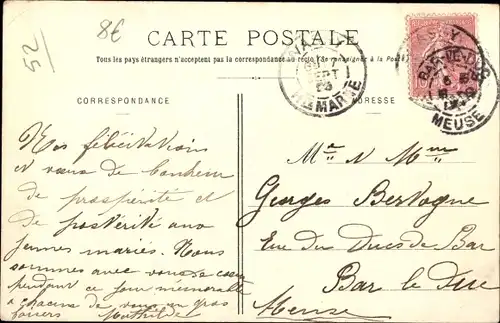 52
8€
CARTE POSTALE
Tous les pays étrangers n'acceptent pas la correspondance au recto (Se renseigner à la Poste)
CORRESPONDANCE
ADRESSE
SEPT
HTE MARNE
BAR-LE-DUC
MEUSE
Mes félicitations
et vœux de bonheur
de prospérité et
de postérité aux
jeunes mariés. Nous
sommes avec vous de cœur
pendant ce jour mémorable
à chacun de vous un gros
baisers Mathilde
Mr & Mme
Georges Bertogne
Rue du Ducs de Bar
Bar le Duc
Meuse